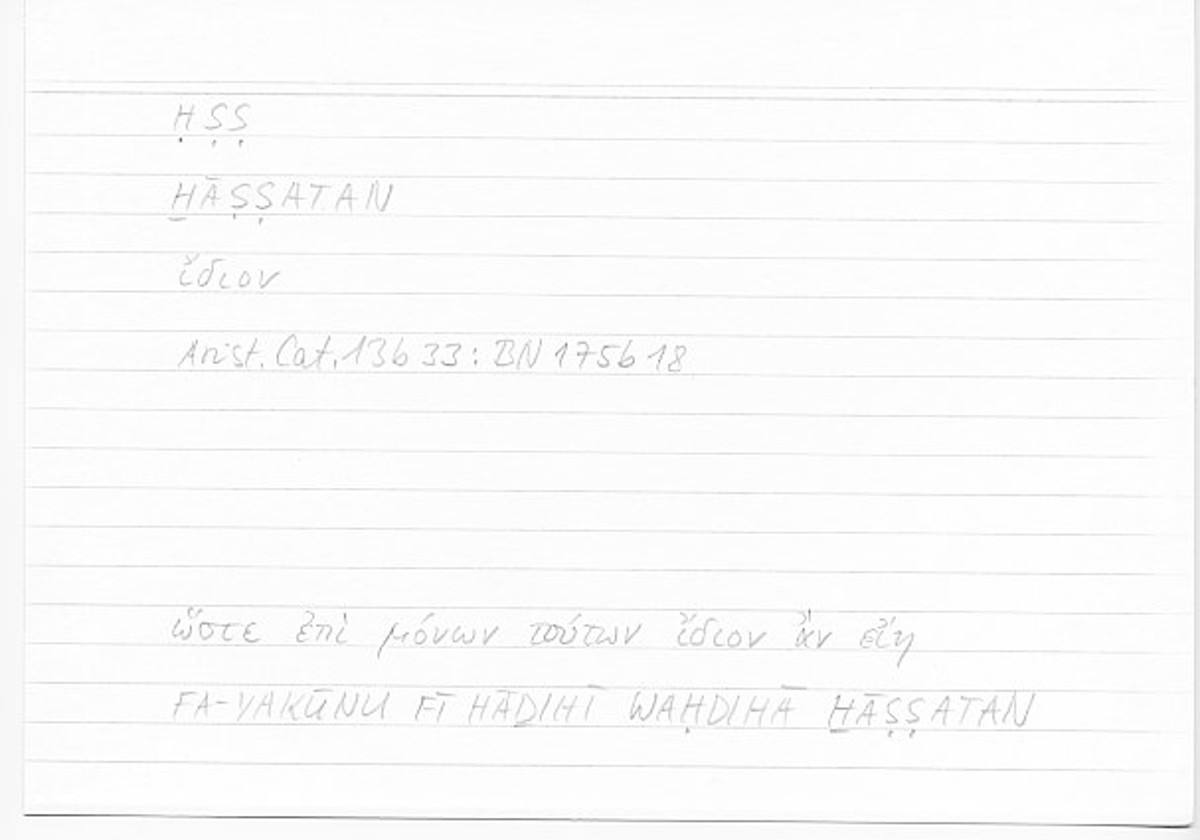 Ḥ Ṣ Ṣ
H̱ĀṢṢATAN
ἴδιον
Arist. Cat. 13b 33 : BN 175b 18
ὥστε ἐπὶ μόνων τούτων ἴδιον ἂν εἴη
FA-YAKŪNU FĪ HĀḎIHĪ WAḤDIHĀ H̱ĀṢṢATAN